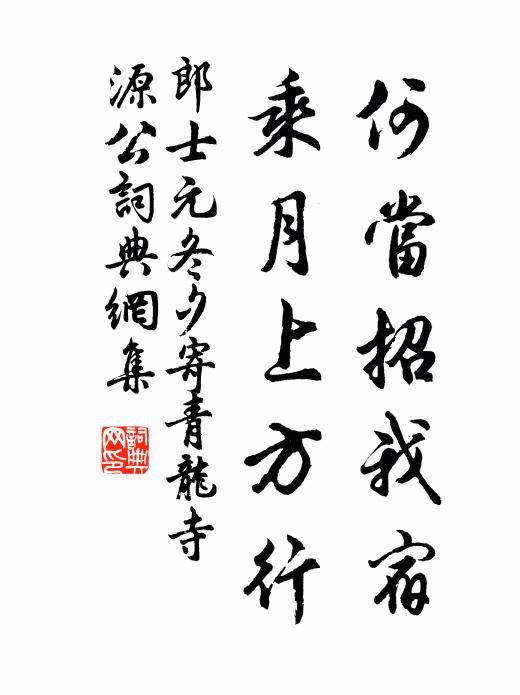 何當招我宿
乘月上方行
郎士元冬夕寄青龍寺
源公詞典網集
詞典
网印